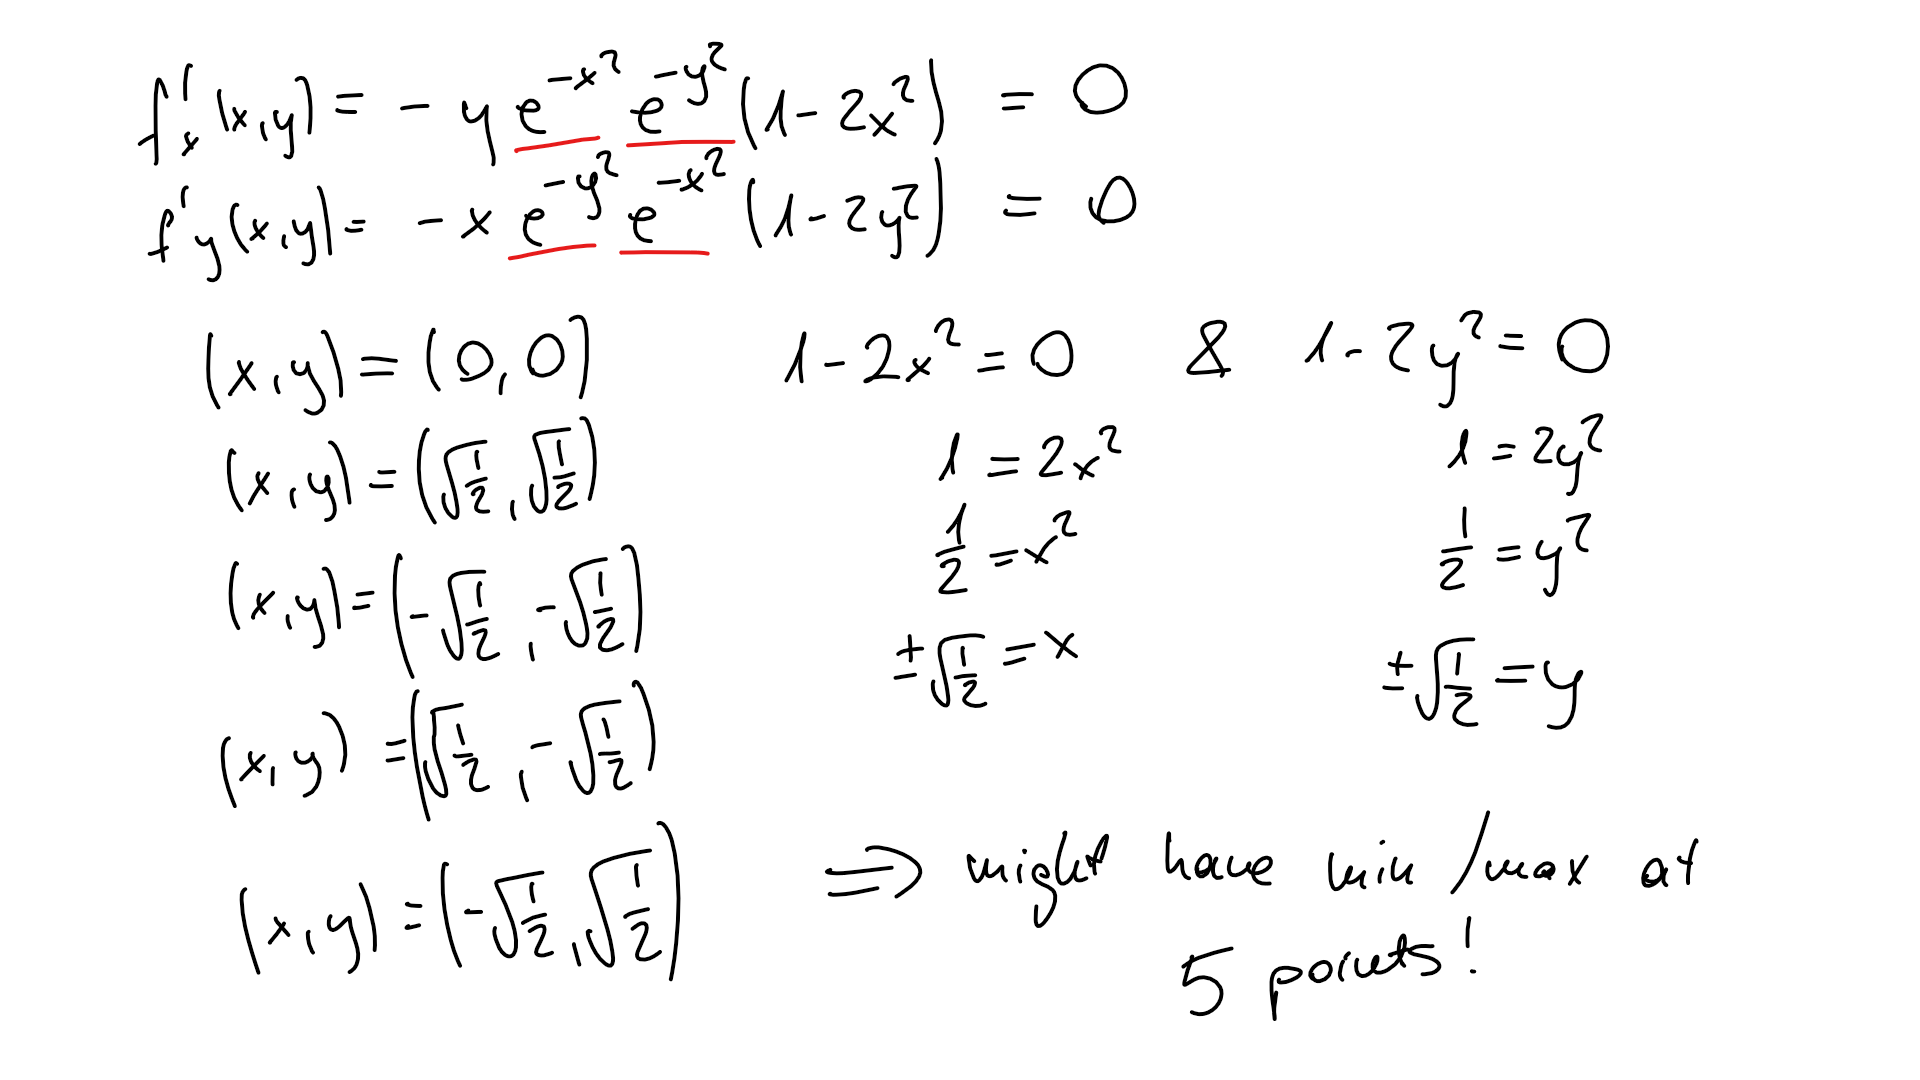 f'ₓ(x,y) = - y e^{-x²} e^{-y²} (1 - 2x²) = 0
f'y(x,y) = - x e^{-y²} e^{-x²} (1 - 2y²) = 0
(x,y) = (0,0) 1 - 2x² = 0 & 1 - 2y² = 0
(x,y) = (√½, √½) 1 = 2x² 1 = 2y²
(x,y) = (-√½, -√½) ½ = x² ½ = y²
±√½ = x ±√½ = y
(x,y) = (√½, -√½)
(x,y) = (-√½, √½) ⇒ might have min/max at
5 points!